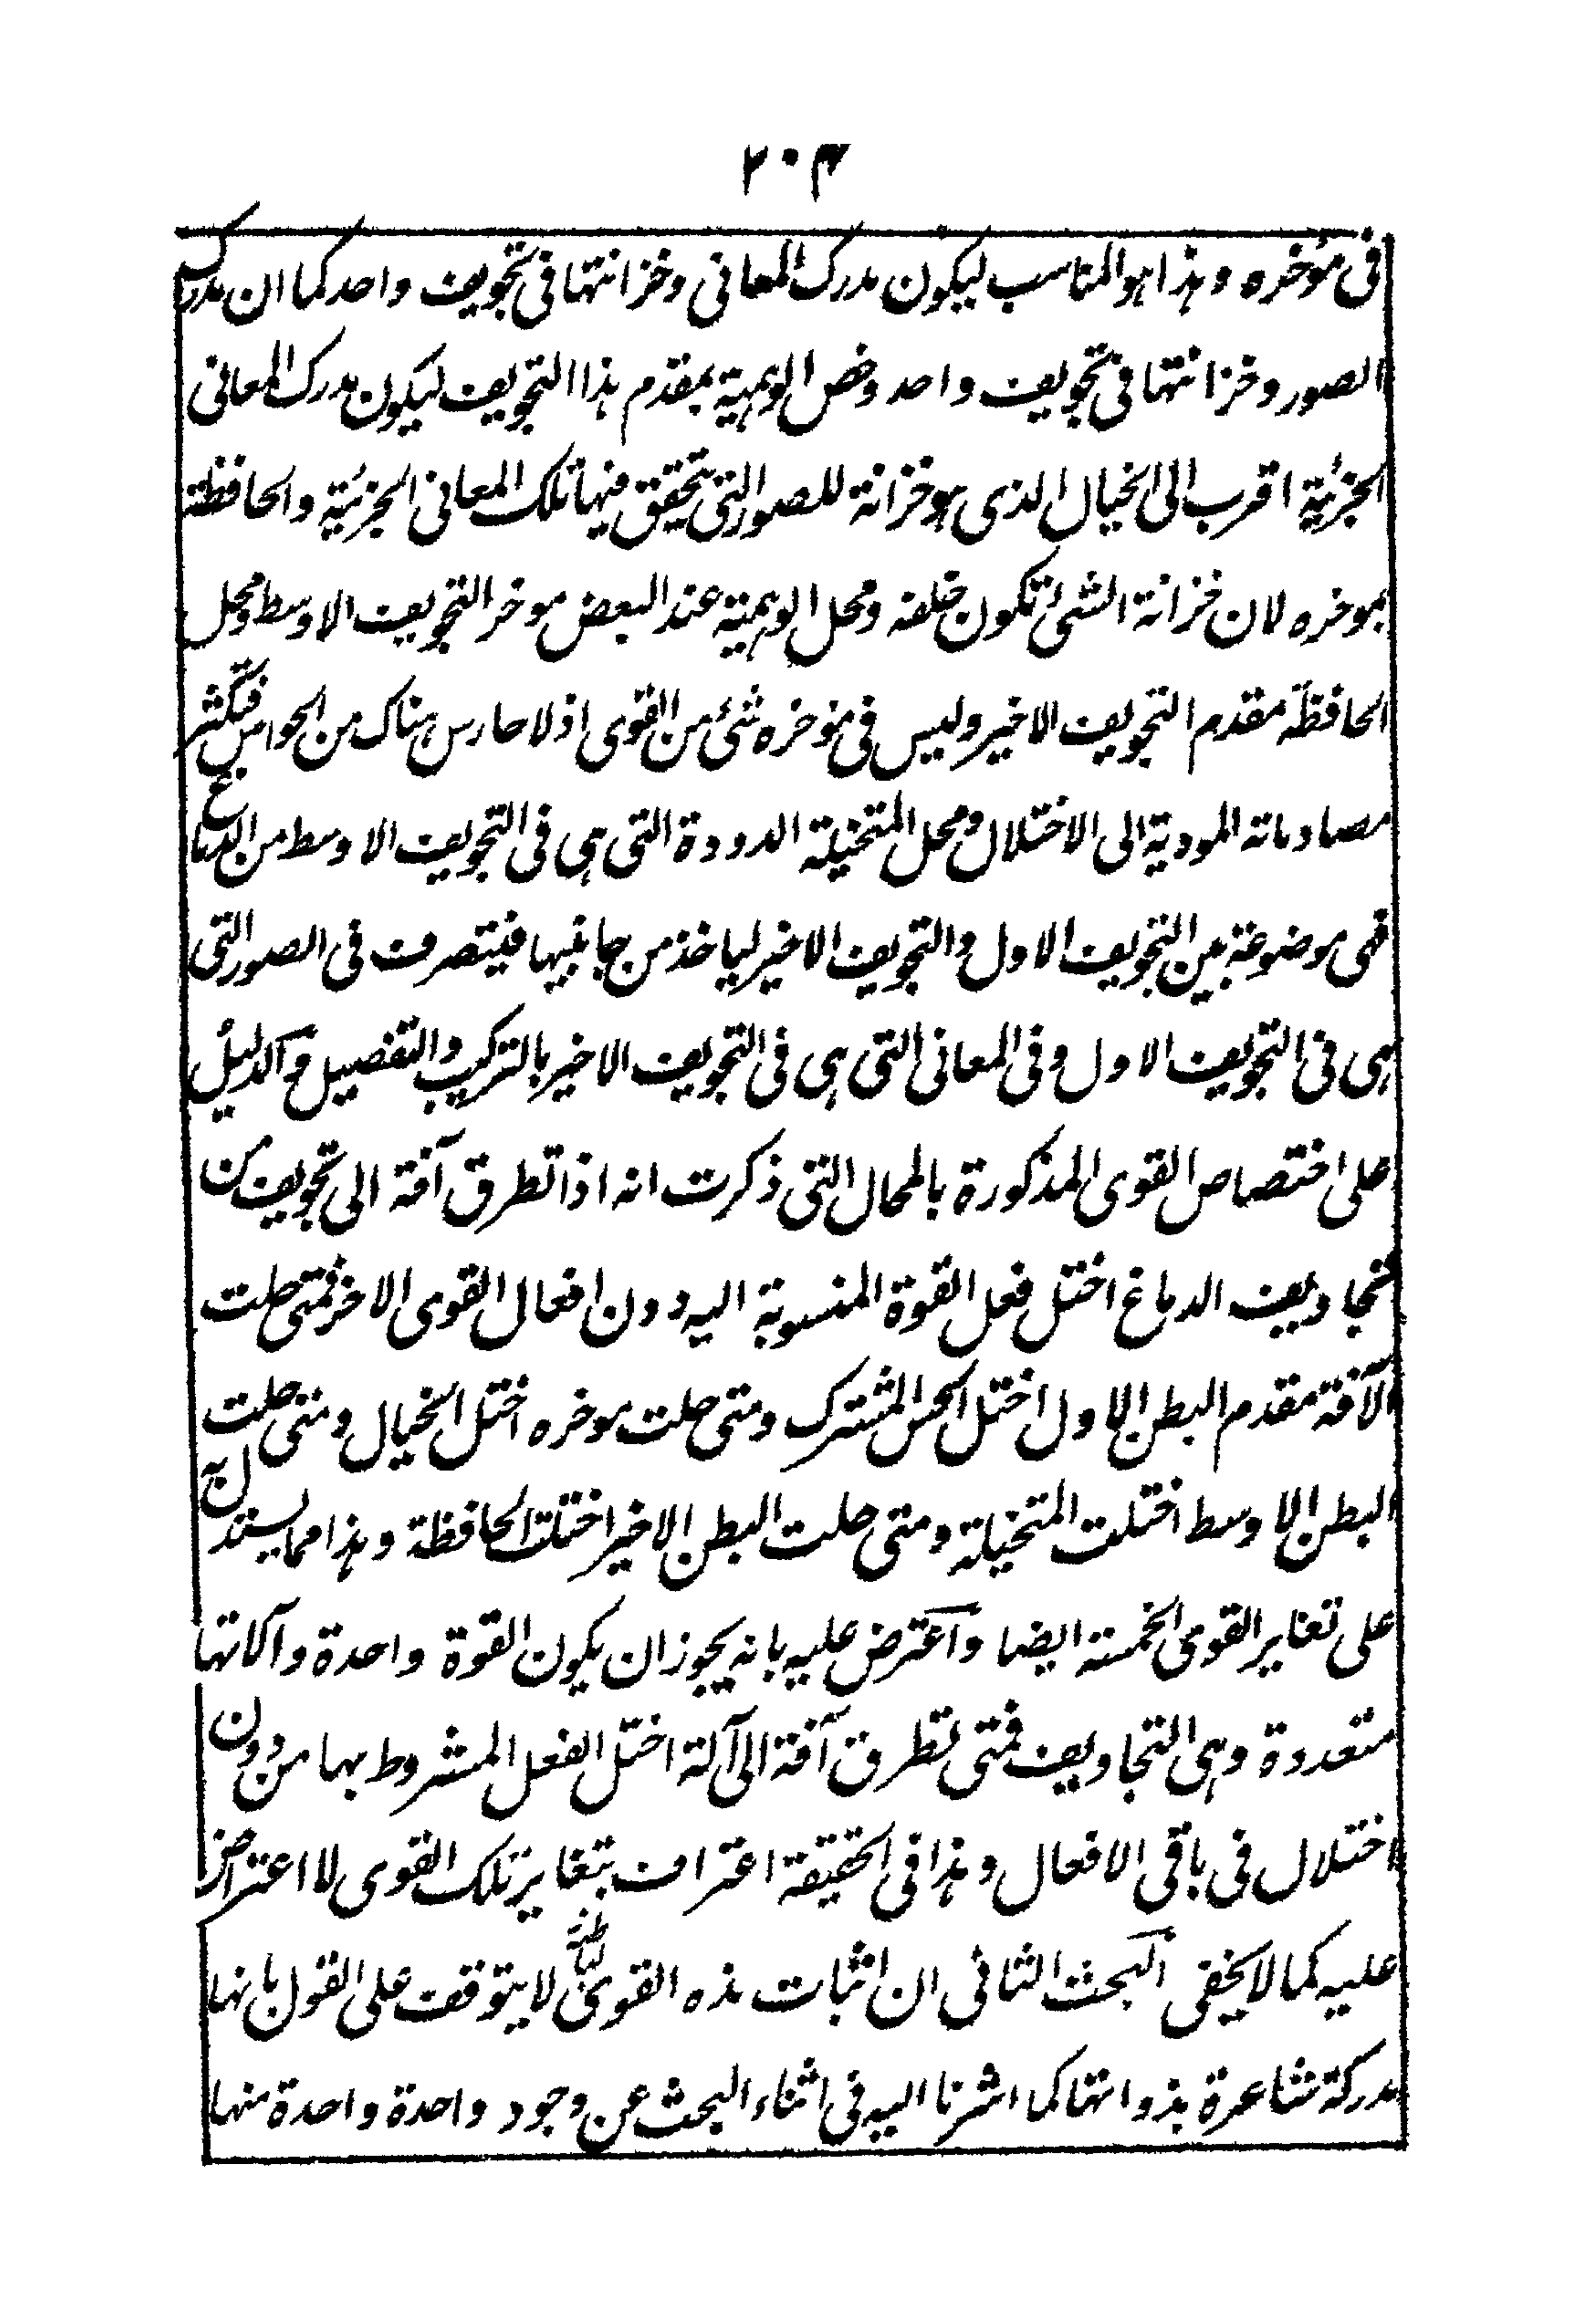 ٢٠٣
فى مؤخره وهذا هو المناسب ليكون مدرك المعانى وخزانتها فى تجويف واحد كما ان مدرك
الصور وخزانتها فى تجويف واحد وخص الوهمية بمقدم هذا التجويف ليكون مدرك المعانى
الجزئية اقرب الى الخيال الذى هو خزانة للصور التى يتحقق فيها تلك المعانى الجزئية والحافظة
بموخره لان خزانة الشئ تكون خلفه ومحل الوهمية عند البعض موخر التجويف الاوسط ومحل
الحافظة مقدم التجويف الاخير وليس فى موخره شئ من القوى اذ لا حارس هناك من الحواس فتكثر
مصادماته المودية الى الاختلال ومحل المتخيلة الدودة التى هى فى التجويف الاوسط من الدماغ
فهى موضوعة بين التجويف الاول والتجويف الاخير لياخذ من جانبيها فيتصرف فى الصور التى
هى فى التجويف الاول وفى المعانى التى هى فى التجويف الاخير بالتركيب والتفصيل والدليل
على اختصاص القوى المذكورة بالمحال التى ذكرت انه اذا تطرق آفة الى تجويف من
تجاويف الدماغ اختل فعل القوة المنسوبة اليه دون افعال القوى الاخر فمتى حلت
الآفة مقدم البطن الاول اختل الحس المشترك ومتى حلت موخره اختل الخيال ومتى حلت
البطن الاوسط اختلت المتخيلة ومتى حلت البطن الاخير اختلت الحافظة وهذا مما يستدل به
على تغاير القوى الخمسة ايضا واعترض عليه بانه يجوز ان يكون القوة واحدة وآلاتها
متعددة وهى التجاويف فمتى تطرق آفة الى آلة اختل الفعل المشروط بها من دون
اختلال فى باقى الافعال وهذا فى الحقيقة اعتراف بتغاير تلك القوى لا اعتراض
عليه كما لا يخفى البحث الثانى ان اثبات هذه القوى الباطنة لا يتوقف على القول بانها
مدركة شاعرة بذواتها كما اشرنا اليه فى اثناء البحث عن وجود واحدة واحدة منها